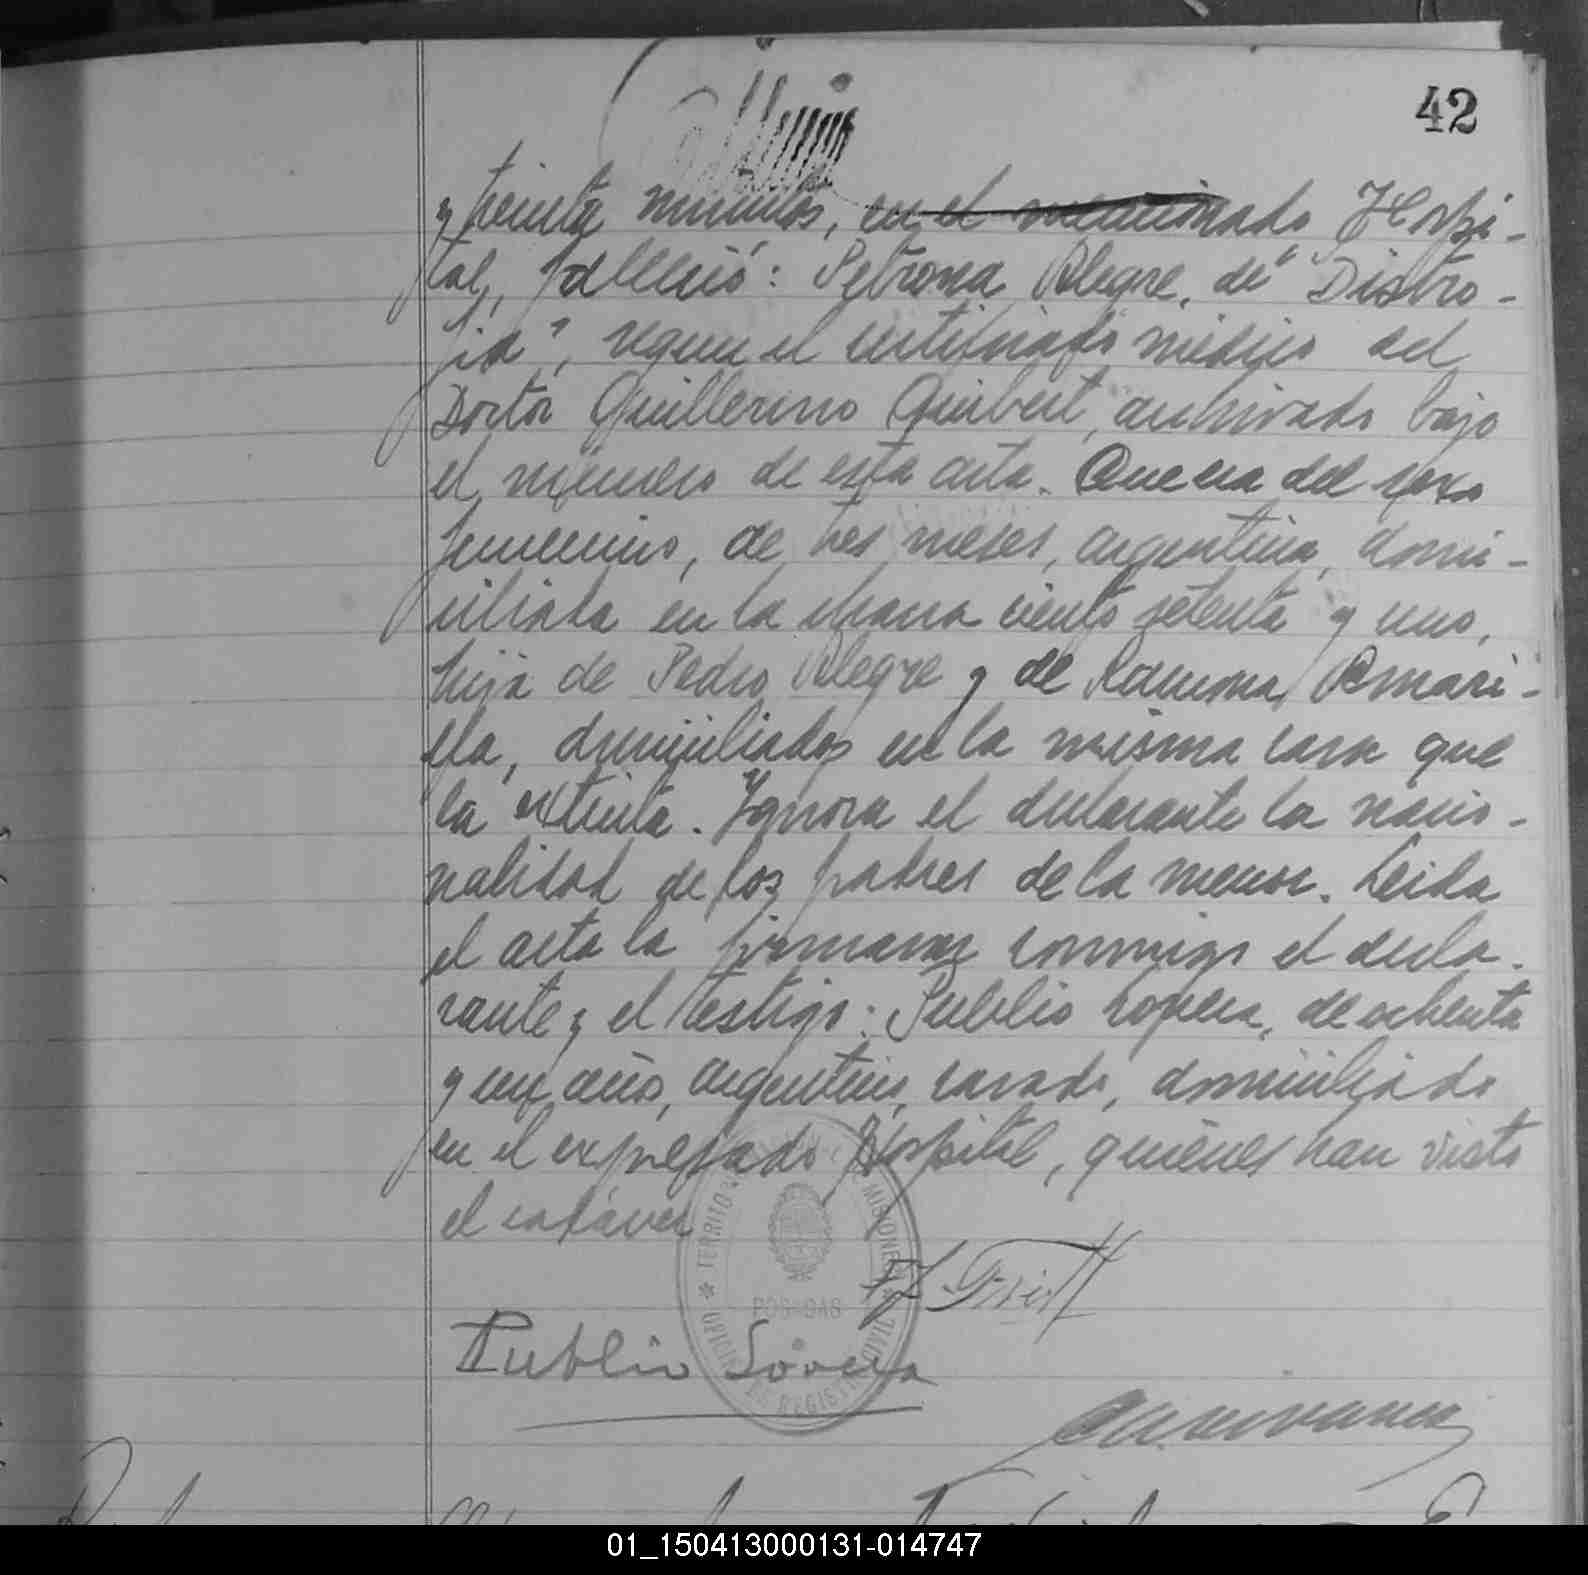 42
y treinta minutos, en el mencionado Hospi-
tal, falleció: Petrona Alegre, de "Distro-
fia", segun el certificado médico del
Doctor Guillermo Guibert, archivado bajo
el número de esta acta. Que era del sexo
femenino, de tres meses, argentina, domi-
ciliada en la chacra ciento setenta y uno,
hija de Pedro Alegre y de Ramona Amari-
lla, domiciliados en la misma casa que
la extinta. Ignora el declarante la nacio-
nalidad de los padres de la menor. Leida
el acta la firmaron conmigo el decla-
rante y el testigo: Publio Lovera, de ochenta
y un años, argentino, casado, domiciliado
en el expresado Hospital, quiénes han visto
el cadáver
Publio Lovera
TERRITO MISIONES
POSADAS
DE REGIST
01_150413000131-014747